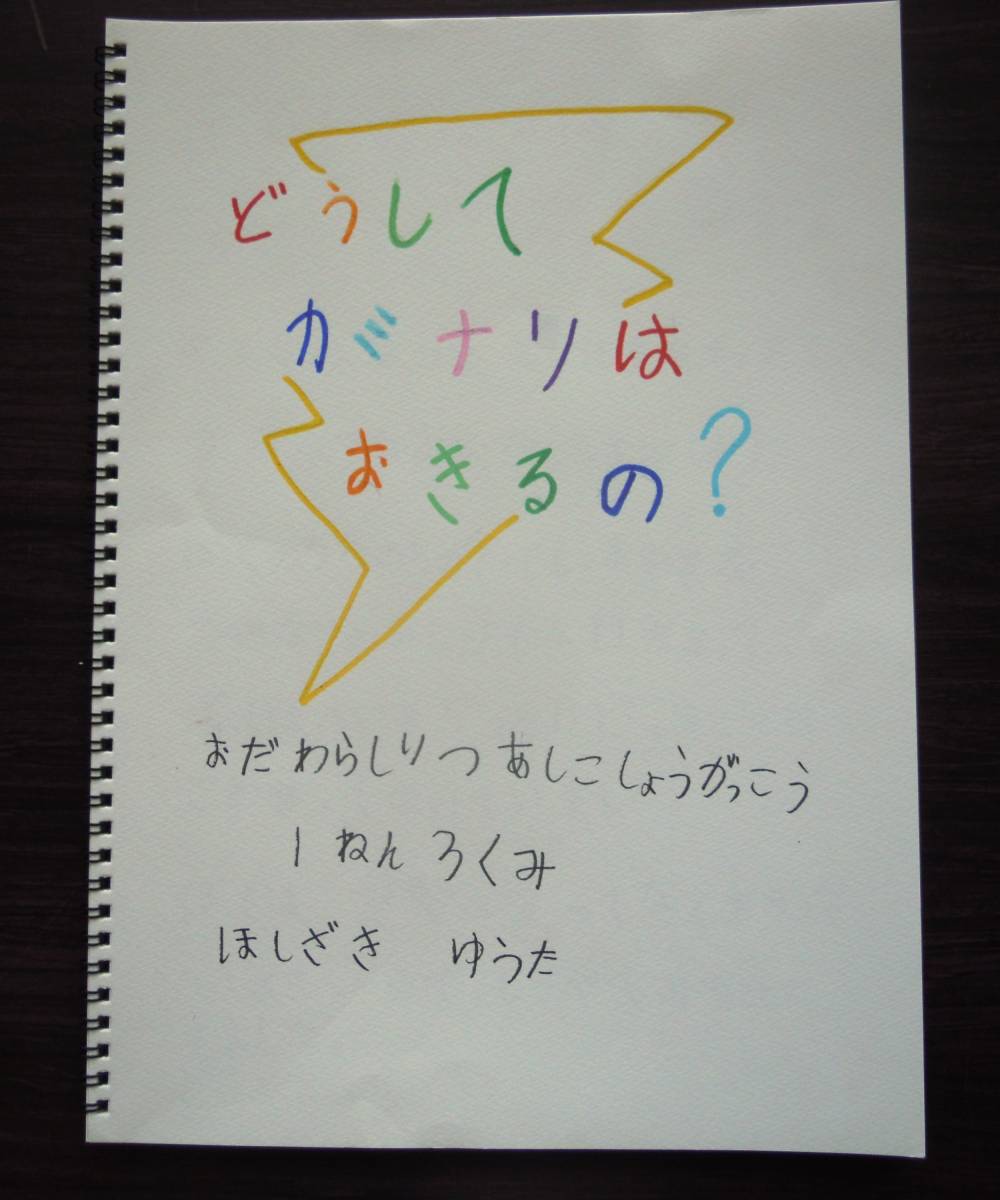 どうして
カミナリは
おきるの?
おだわらしりつ あしこしょうがっこう
1ねん 3くみ
ほしざき ゆうた